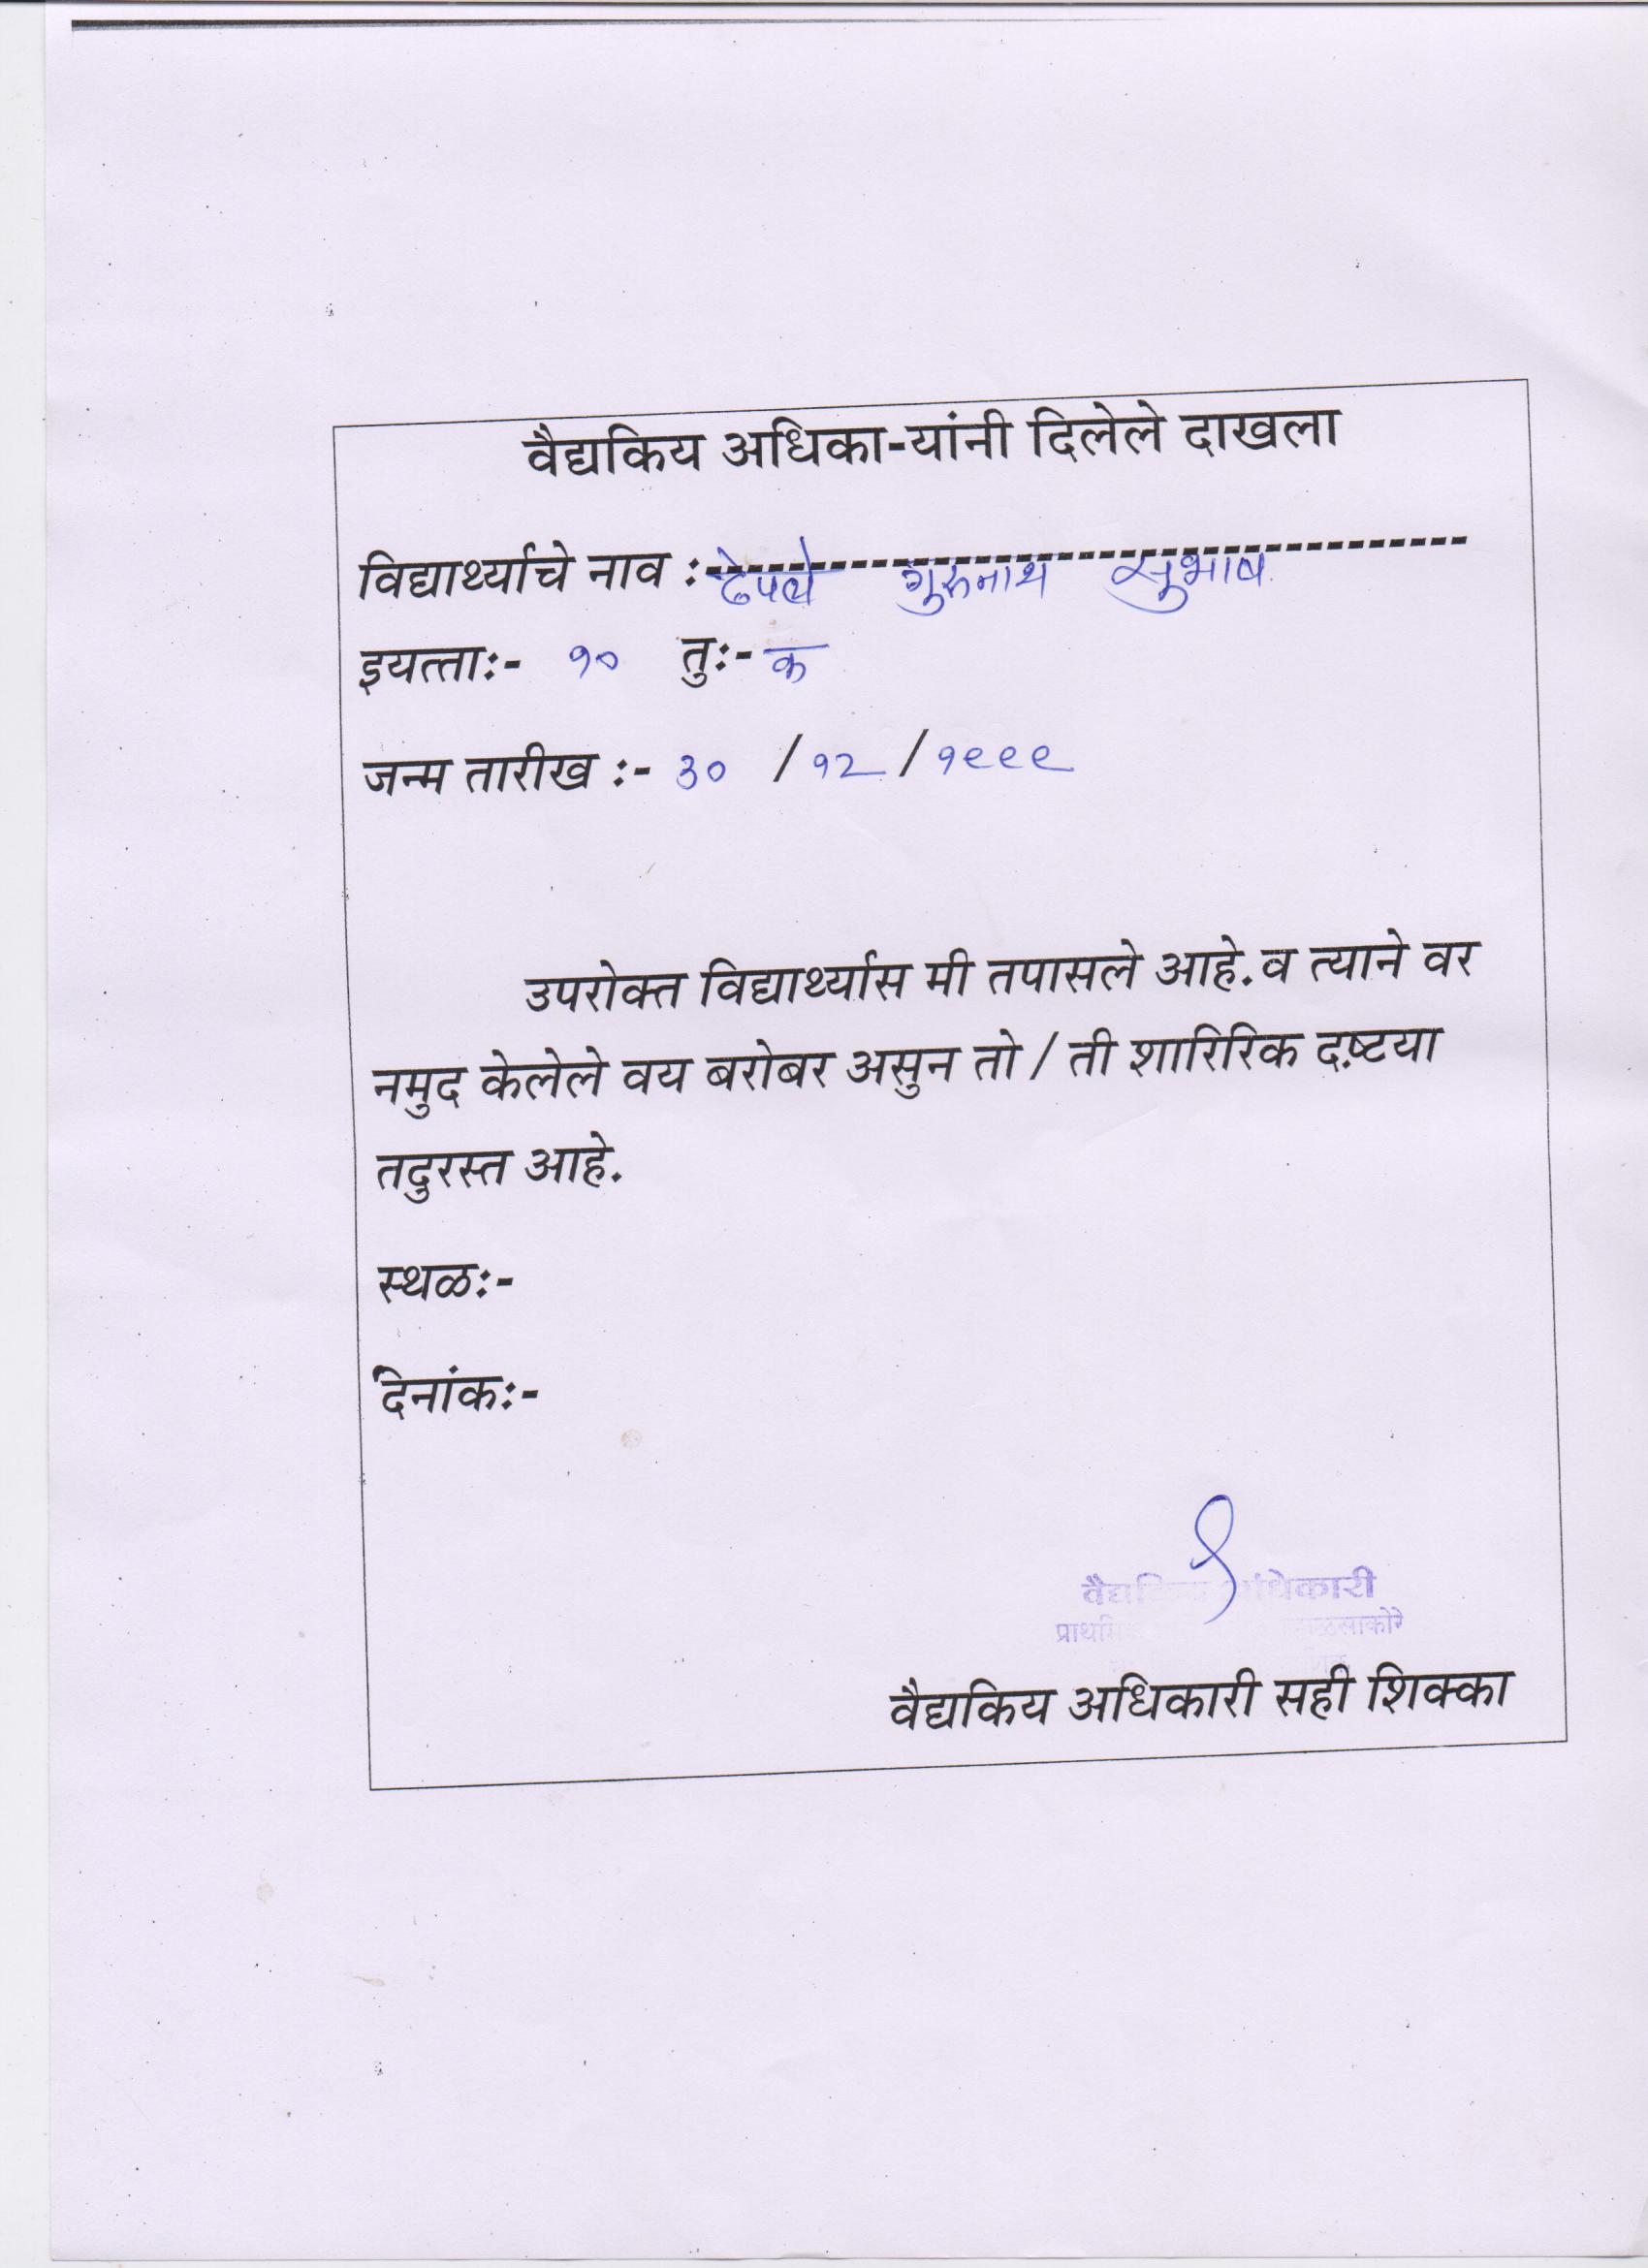 वैद्यकिय अधिका-यांनी दिलेले दाखला
विद्यार्थ्याचे नाव :- ढेपले गुरुनाथ सुभाष
इयत्ताः- १० तुः- क
जन्म तारीख :- ३० / १२ / १९९९
उपरोक्त विद्यार्थ्यास मी तपासले आहे. व त्याने वर
नमुद केलेले वय बरोबर असुन तो / ती शारिरिक दष़्टया
तदुरस्त आहे.
स्थळः-
दिनांकः-
वैद्यकिय अधिकारी
वैद्यकिय अधिकारी सही शिक्का